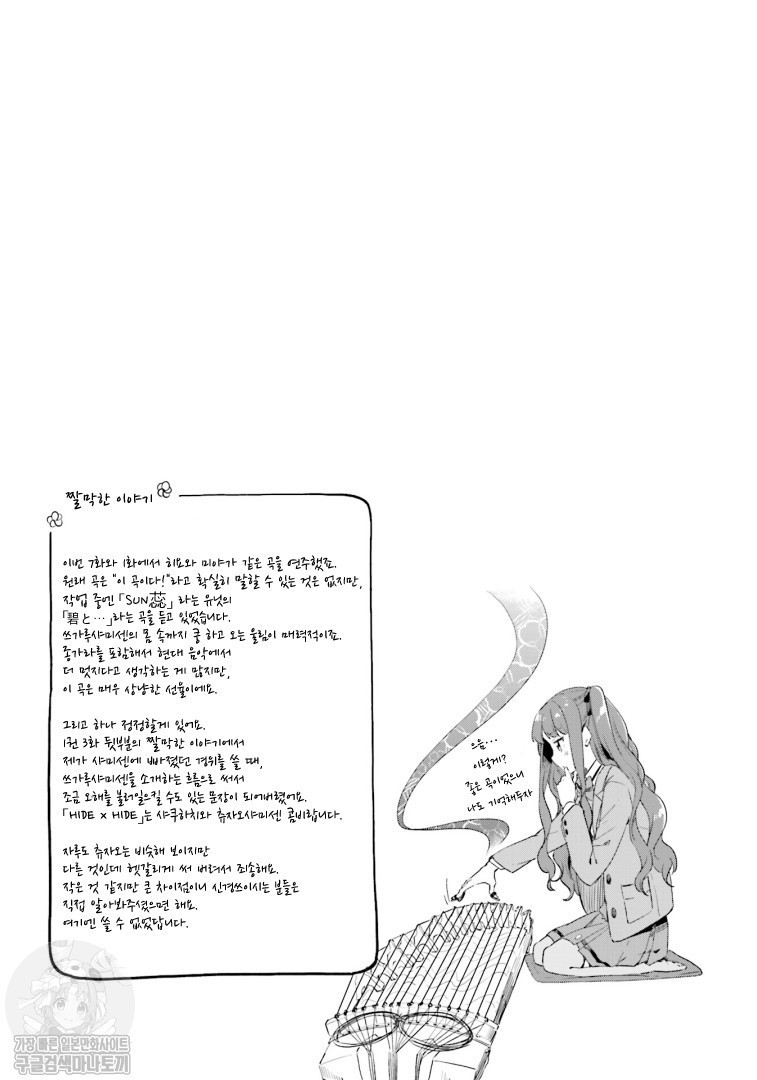 짤막한 이야기
이번 7화와 1화에서 히요와 미야가 같은 곡을 연주했죠.
원래 곡은 "이 곡이다!"라고 확실히 말할 수 있는 것은 없지만,
작업 중엔 「SUN蕊」라는 유닛의
「碧と…」라는 곡을 듣고 있었습니다.
쓰가루샤미센의 몸 속까지 쿵 하고 오는 울림이 매력적이죠.
종가라를 포함해서 현대 음악에서
더 멋지다고 생각하는 게 많지만,
이 곡은 매우 상냥한 선율이에요.
그리고 하나 정정할게 있어요.
1권 3화 뒷부분의 짤막한 이야기에서
제가 샤미센에 빠졌던 경위를 쓸 때,
쓰가루샤미센을 소개하는 흐름으로 써서
조금 오해를 불러일으킬 수도 있는 문장이 되어버렸어요.
「HIDE × HIDE」는 샤쿠하치와 츄자오샤미센 콤비랍니다.
자루도 츄자오는 비슷해 보이지만
다른 것인데 헷갈리게 써 버려서 죄송해요.
작은 것 같지만 큰 차이점이니 신경쓰이시는 분들은
직접 알아봐주셨으면 해요.
여기엔 쓸 수 없었답니다.
으음...
이렇게?
좋은 곡이었으니
나도 기억해두자
가장 빠른 일본만화사이트
구글검색마나토끼